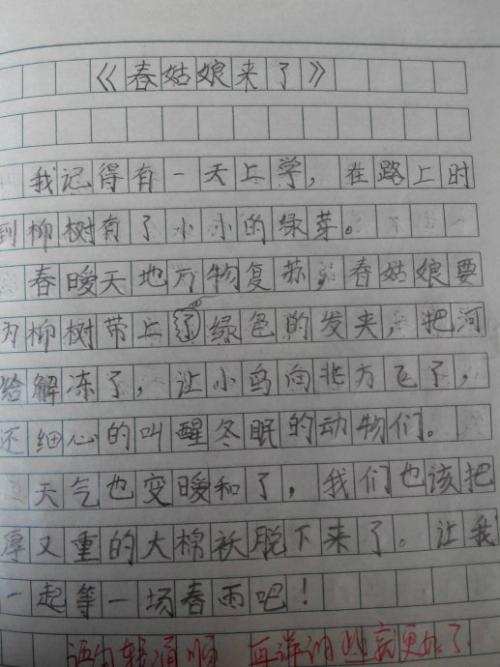 《春姑娘来了》
我记得有一天上学，在路上时
到柳树有了小小的绿芽。
春暖天地万物复苏，春姑娘要
为柳树带上了绿色的发夹，把河
给解冻了，让小鸟向北方飞了，
还细心的叫醒冬眠的动物们。
天气也变暖和了，我们也该把
厚又重的大棉袄脱下来了。让我
一起等一场春雨吧！
语句较通顺 再详细些就更好了